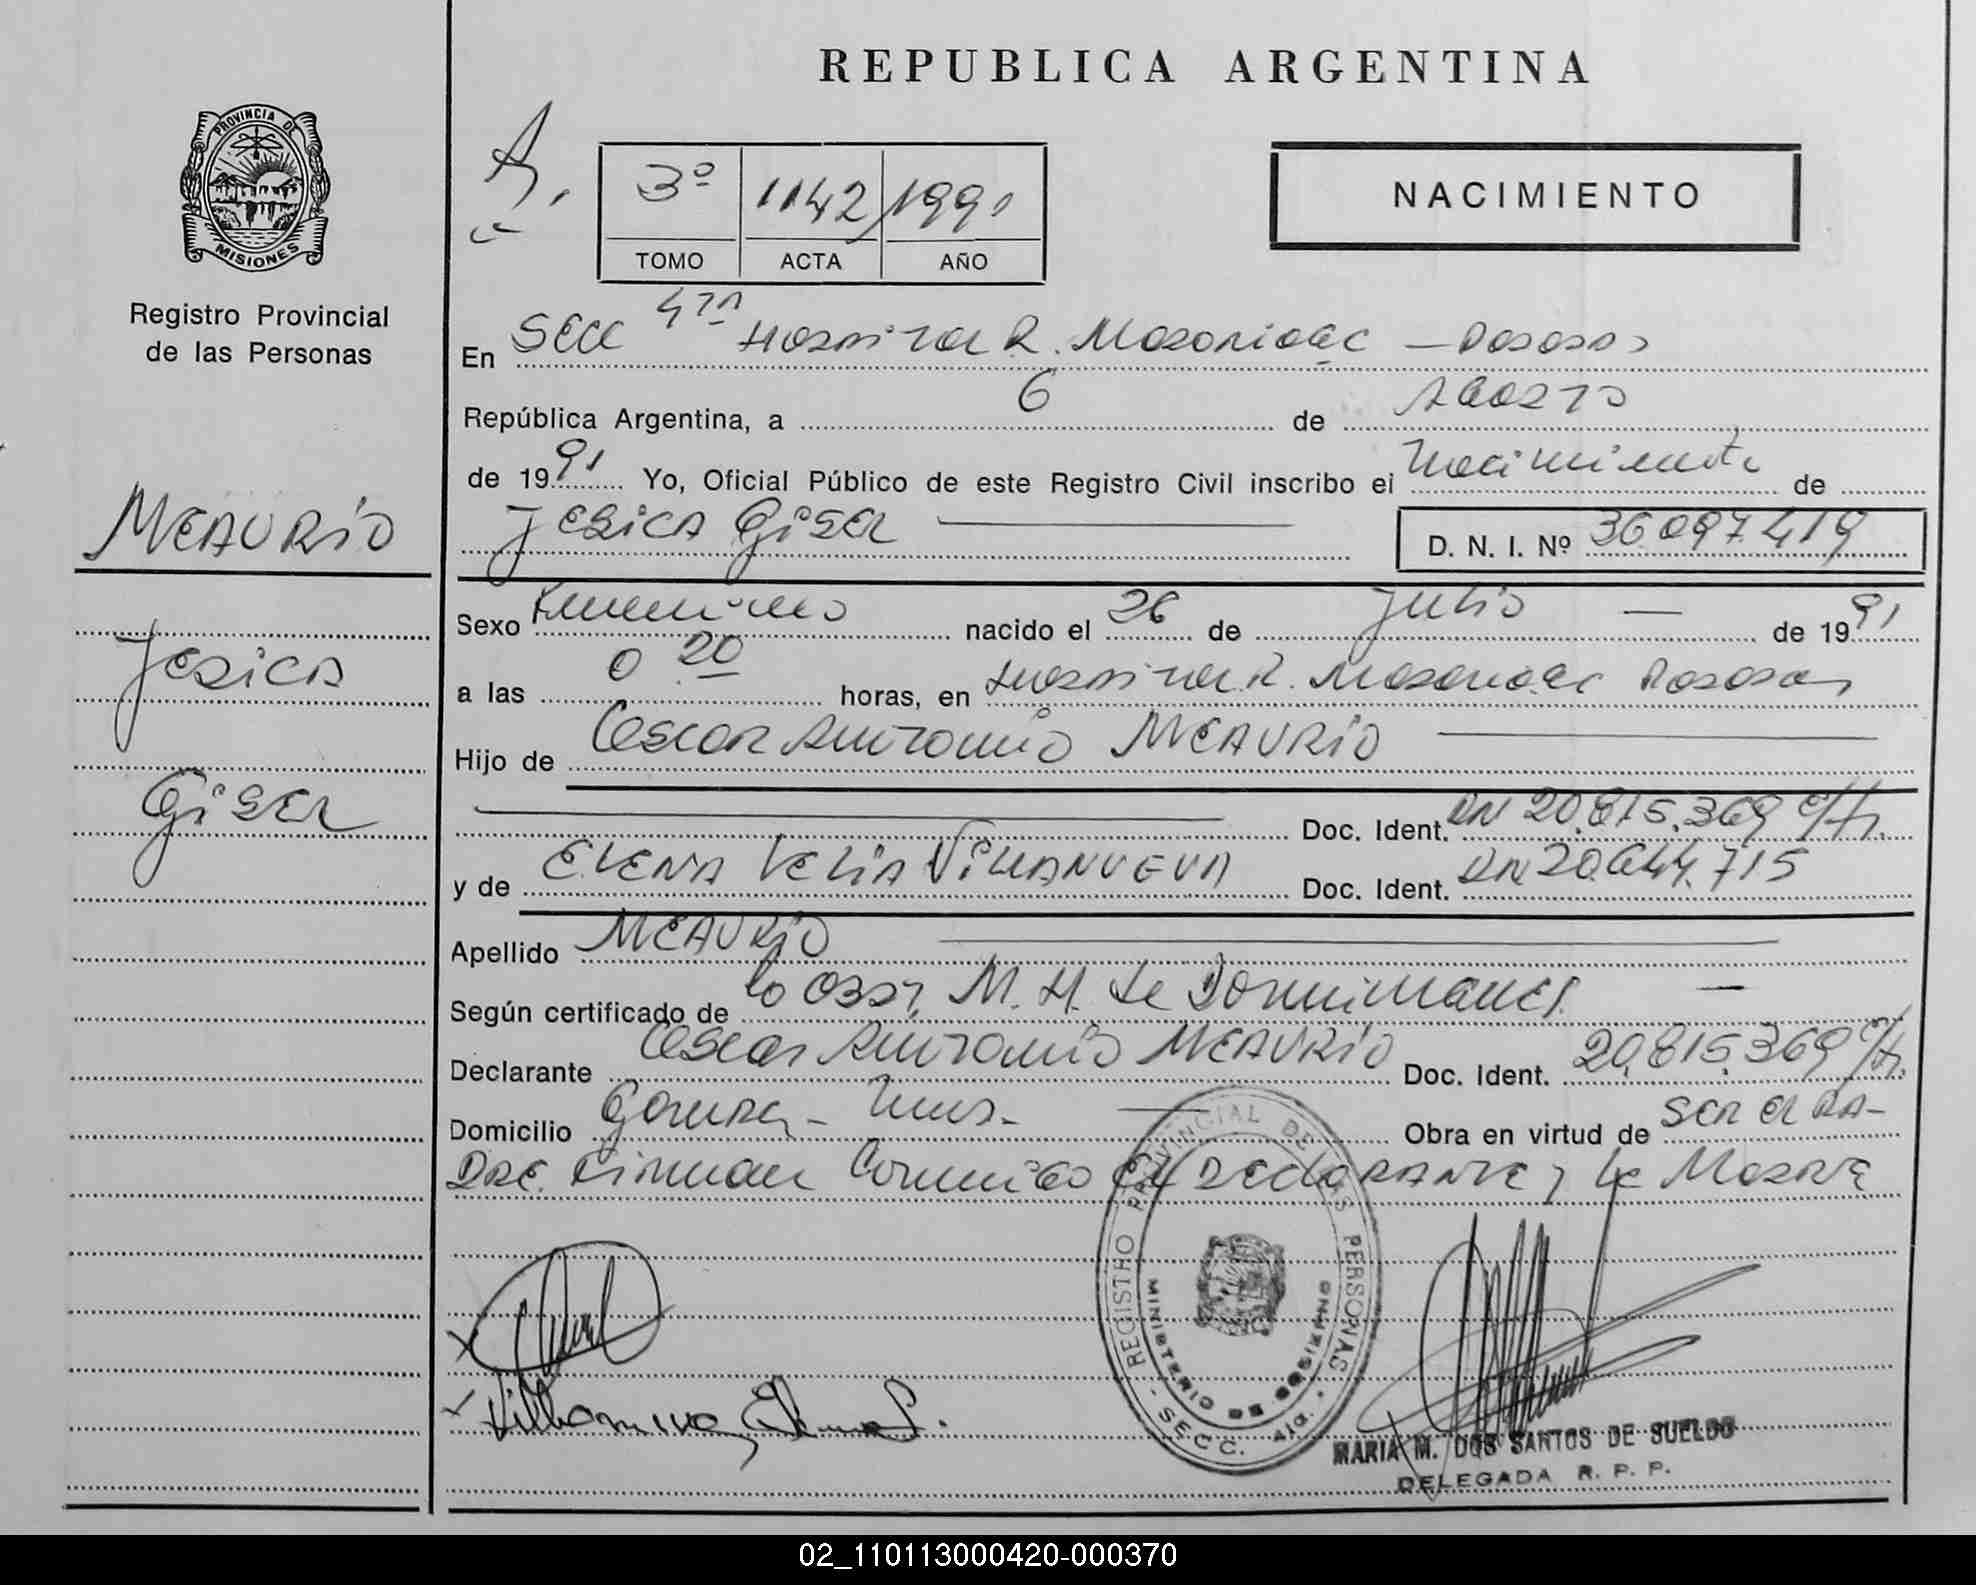 REPUBLICA ARGENTINA
PROVINCIA DE
MISIONES
Registro Provincial
de las Personas
3º 1142 1991
TOMO ACTA AÑO
NACIMIENTO
En Secc 4ta Hospital R. Madariaga – Posadas
República Argentina, a 6 de Agosto
de 1991 Yo, Oficial Público de este Registro Civil inscribo el Nacimiento de
MEAURIO
Jesica Gisel
D. N. I. Nº 36.097.419
Jesica
Gisel
Sexo Femenino nacido el 26 de Julio — de 1991
a las 0.20 horas, en Hospital R. Madariaga Posadas
Hijo de Oscar Antonio MEAURIO
Doc. Ident. DNI 20.815.369
y de ELENA VELIA VILLANUEVA Doc. Ident. DNI 20.644.715
Apellido MEAURIO
Según certificado de la Obst. M. H. de
Declarante Oscar Antonio MEAURIO Doc. Ident. 20.815.369
Domicilio Mnes. Obra en virtud de ser el Pa-
dre. Firman Conmigo el DECLARANTE y la Madre
Villanueva, Elena
REGISTRO PROVINCIAL DE LAS PERSONAS
MINISTERIO DE GOBIERNO
SECC. 4ta.
MARIA M. DOS SANTOS DE SUELDO
DELEGADA R. P. P.
02_110113000420-000370